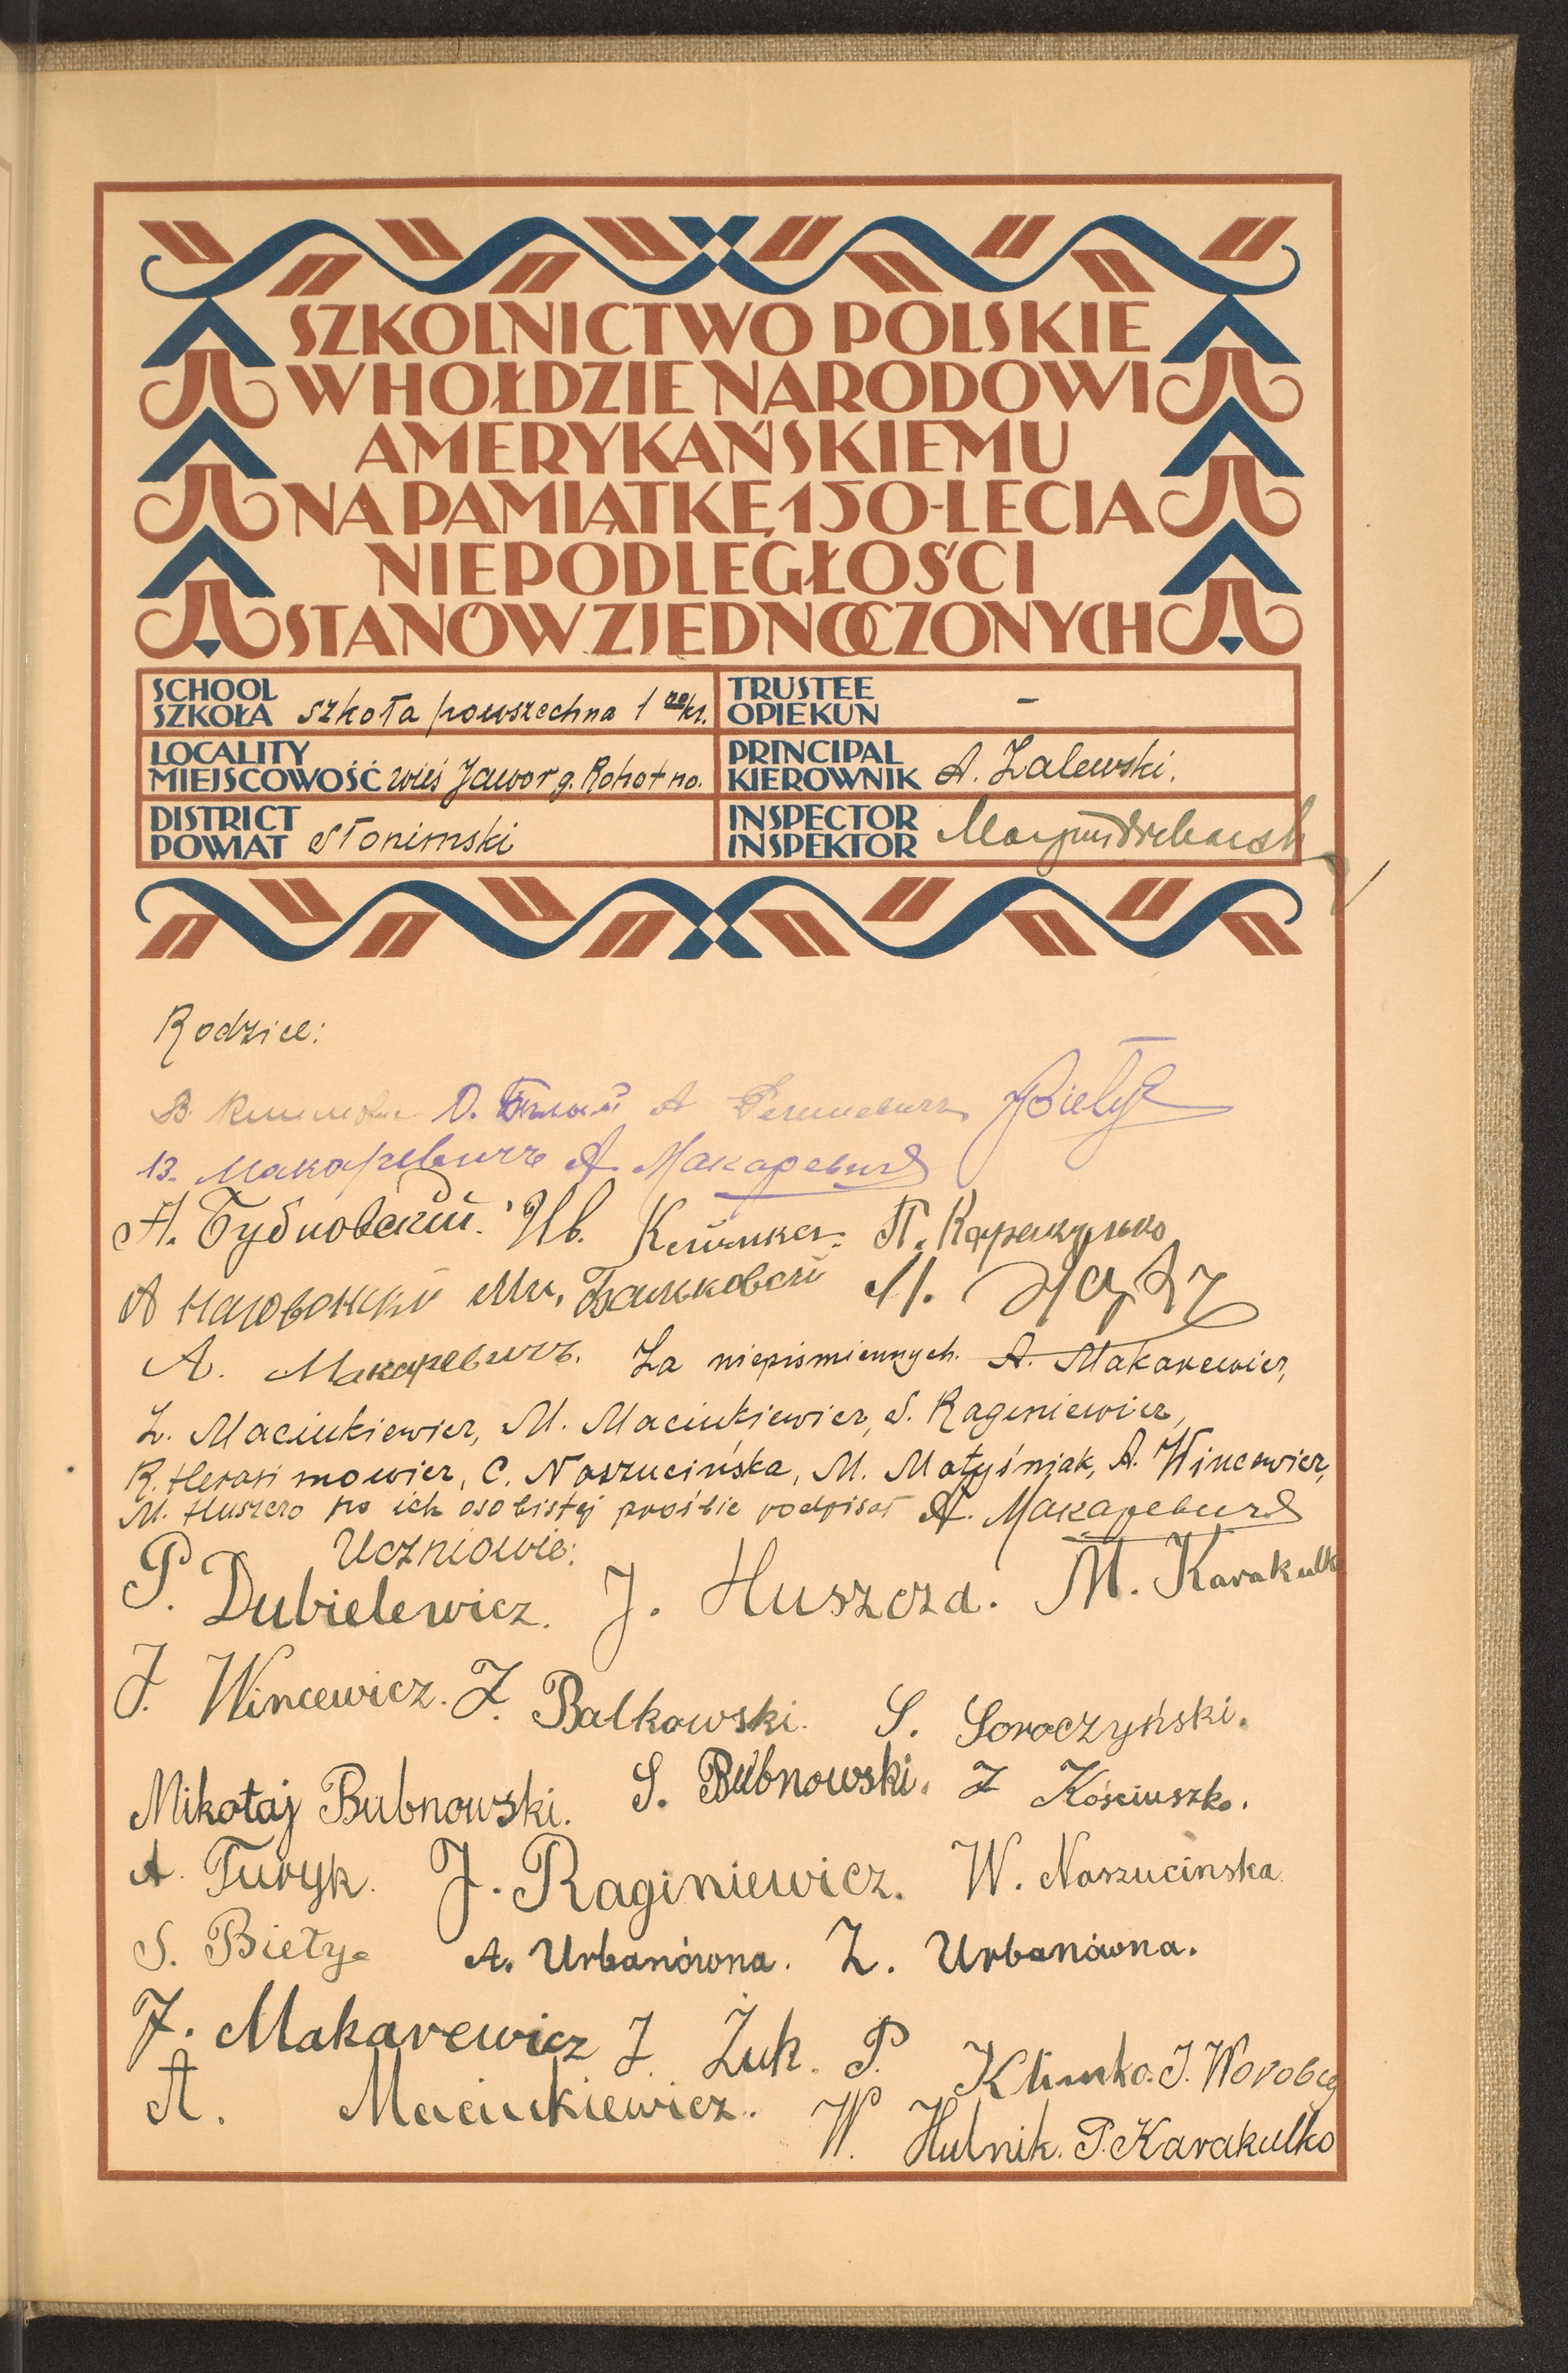 SZKOLNICTWO POLSKIE
W HOŁDZIE NARODOWI
AMERYKAŃSKIEMU
NA PAMIĄTKĘ 150-LECIA
NIEPODLEGŁOŚCI
STANÓW ZJEDNOCZONYCH
SCHOOL
SZKOŁA szkoła powszechna 1 kl.
TRUSTEE
OPIEKUN –
LOCALITY
MIEJSCOWOŚĆ wieś Jawor g. Rohotno.
PRINCIPAL
KIEROWNIK A. Zalewski.
DISTRICT
POWIAT Słonimski
INSPECTOR
INSPEKTOR
Rodzice:
О. А Biełyż
В. Макаревич А. Макаревич
А. Бубновский. Ив. П. Каракулько
А Ми. М.
А. Макаревич. Za niepismiennych. A. Makarewicz,
Z. Maciukiewicz, M. Maciukiewicz, S. Raginiewicz,
R. Herasimowicz, C. Naszucińska, M. Matyśniak, A. Wincewicz,
M. Huszczo na ich osobistej prośbie podpisał А. Макаревич
Uczniowie:
P. Dubielewicz. J. Huszcza. M. Karakulk
J. Wincewicz. J. Balkowski. S. Soroczyński.
Mikołaj Bubnowski. S. Bubnowski. J Kościuszko.
A. Turyk. J. Raginiewicz. W. Naszucinska.
S. Biełyż A. Urbanówna. Z. Urbanówna.
J. Makarewicz J. Żuk. P. Klimko. J. Worobej
A. Maciukiewicz. W. Hulnik. P. Karakulko